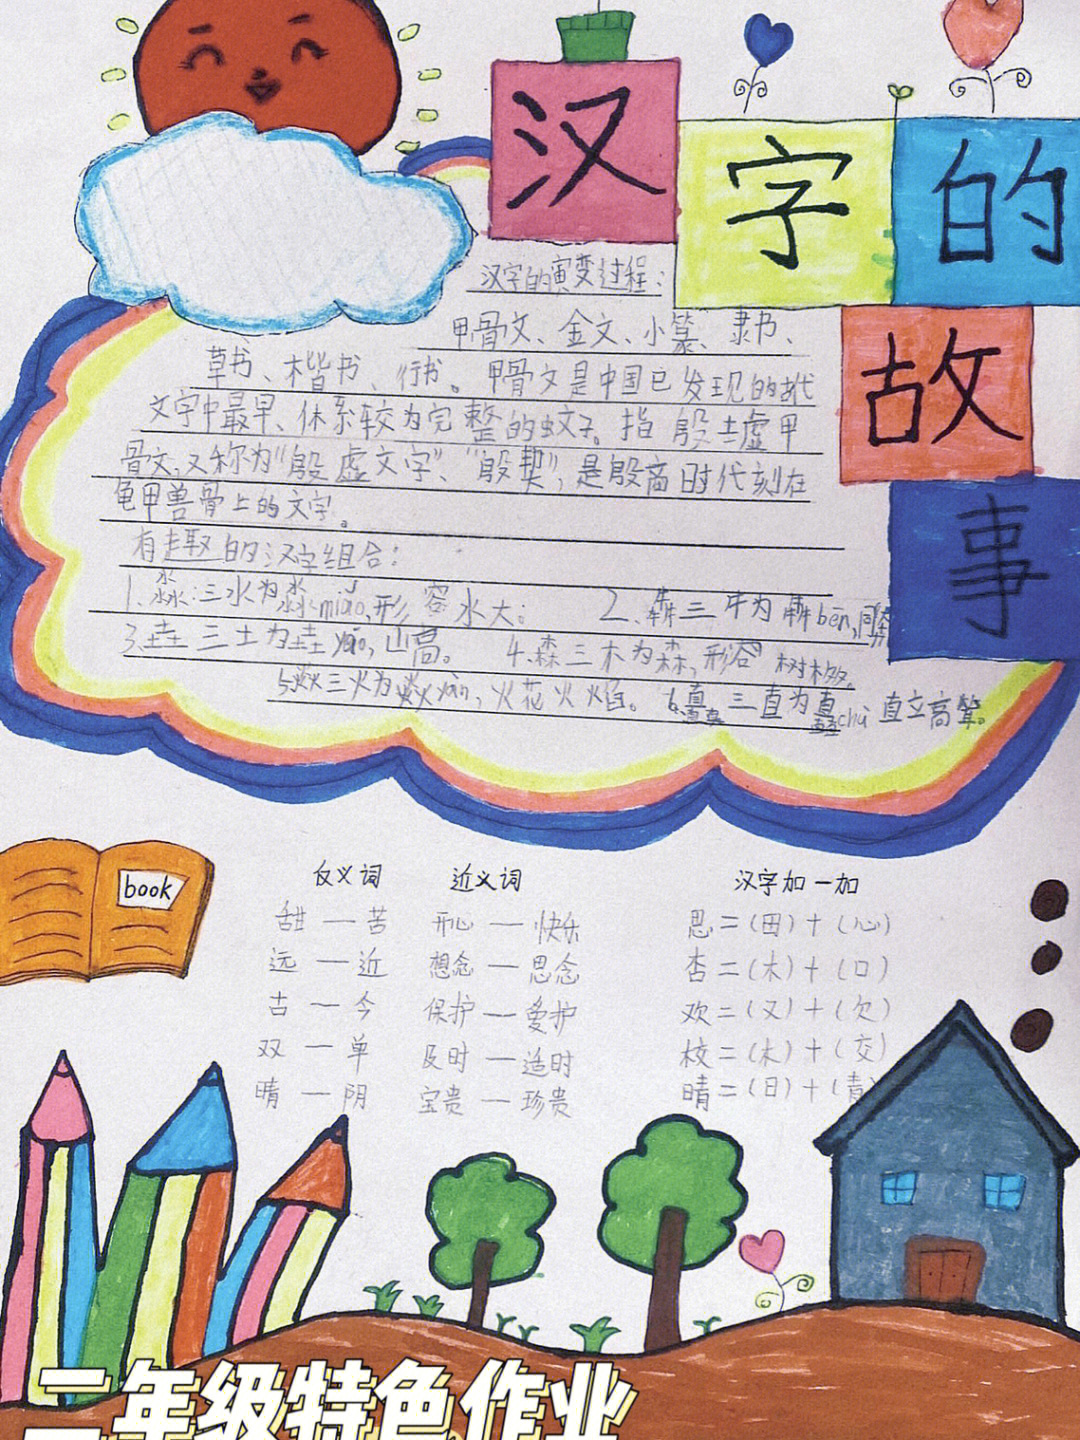 汉字的故事
汉字的演变过程:
甲骨文、金文、小篆、隶书、
草书、楷书、行书。甲骨文是中国已发现的古代
文字中最早、体系较为完整的文字。指殷墟甲
骨文,又称为"殷虚文字"、"殷契",是殷商时代刻在
龟甲兽骨上的文字。
有趣的汉字组合:
1.淼:三水为淼miǎo,形容水大; 2.犇三牛为犇bēn,同奔
3.垚三土为垚yáo,山高。 4.森三木为森,形容树木多。
5.焱三火为焱yàn,火花火焰。 6.矗三直为矗chù直立高耸。
book
反义词 近义词 汉字加一加
甜—苦 开心—快乐 思=(田)+(心)
远—近 想念—思念 杏=(木)+(口)
古—今 保护—爱护 欢=(又)+(欠)
双—单 及时—适时 校=(木)+(交)
晴—阴 宝贵—珍贵 晴=(日)+(青)
二年级特色作业